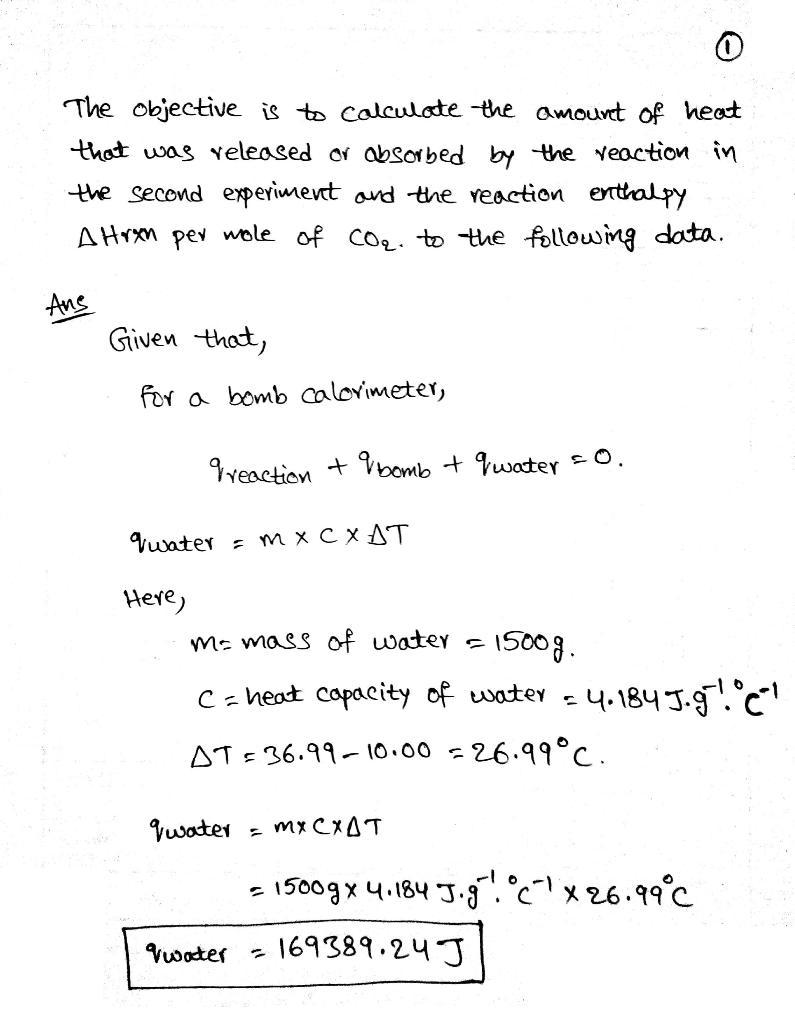 ①
The objective is to calculate the amount of heat
that was released or absorbed by the reaction in
the second experiment and the reaction enthalpy
ΔHrxn per mole of CO₂. to the following data.
Ans
Given that,
for a bomb calorimeter,
qreaction + qbomb + qwater = 0.
qwater = m × C × ΔT
Here,
m = mass of water = 1500g.
C = heat capacity of water = 4.184 J.g⁻¹.°C⁻¹
ΔT = 36.99 – 10.00 = 26.99°C.
qwater = m×C×ΔT
= 1500g × 4.184 J.g⁻¹.°C⁻¹ × 26.99°C
qwater = 169389.24 J